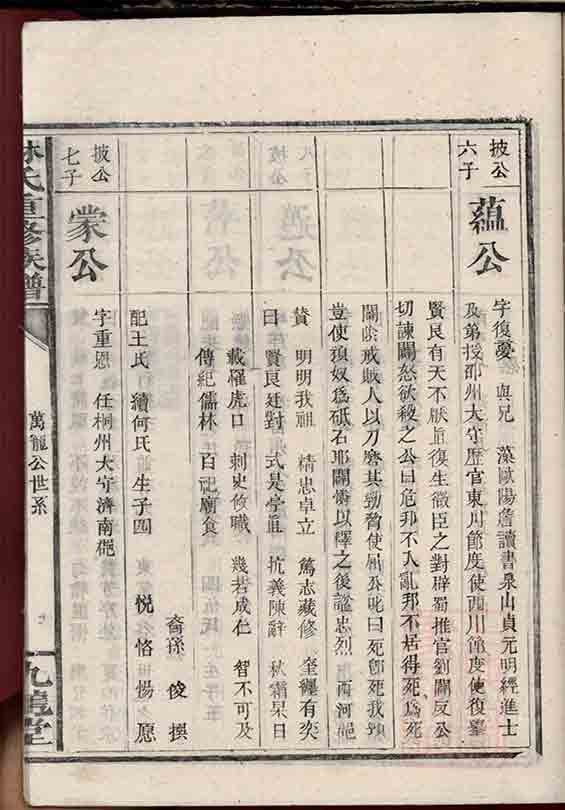 披公
六子
蘊公
字復夢 與兄 藻歐陽詹讀書泉山貞元明經進士
及第授邵州太守歷官東川節度使西川節度使復舉
賢良有天不厭旨復生微臣之對辟蜀推官劉闢反公
切諫闢怒欲殺之公曰危邦不入亂邦不居得死為死
闢陰戒賊人以刀磨其勁脅使屈公叱曰死即死我頸
豈使頑奴為砥石耶闢壯以釋之後諡忠烈 西河郡
贊 明明我祖 精忠卓立 篤志藏修 奎纏有奕
曰賢良廷對 式是亭直 抗義陳辭 秋霜杲日
載罹虎口 刺史攸職 幾若成仁 智不可及
傳紀儒林 百祀廟食
裔孫 俊 撰
配王氏 續何氏 生子四 悅 恪 惕 愿
披公
七子
蒙公
字重恩 任桐州太守濟南郡
林氏重修族譜
萬龍公世系
九龍堂